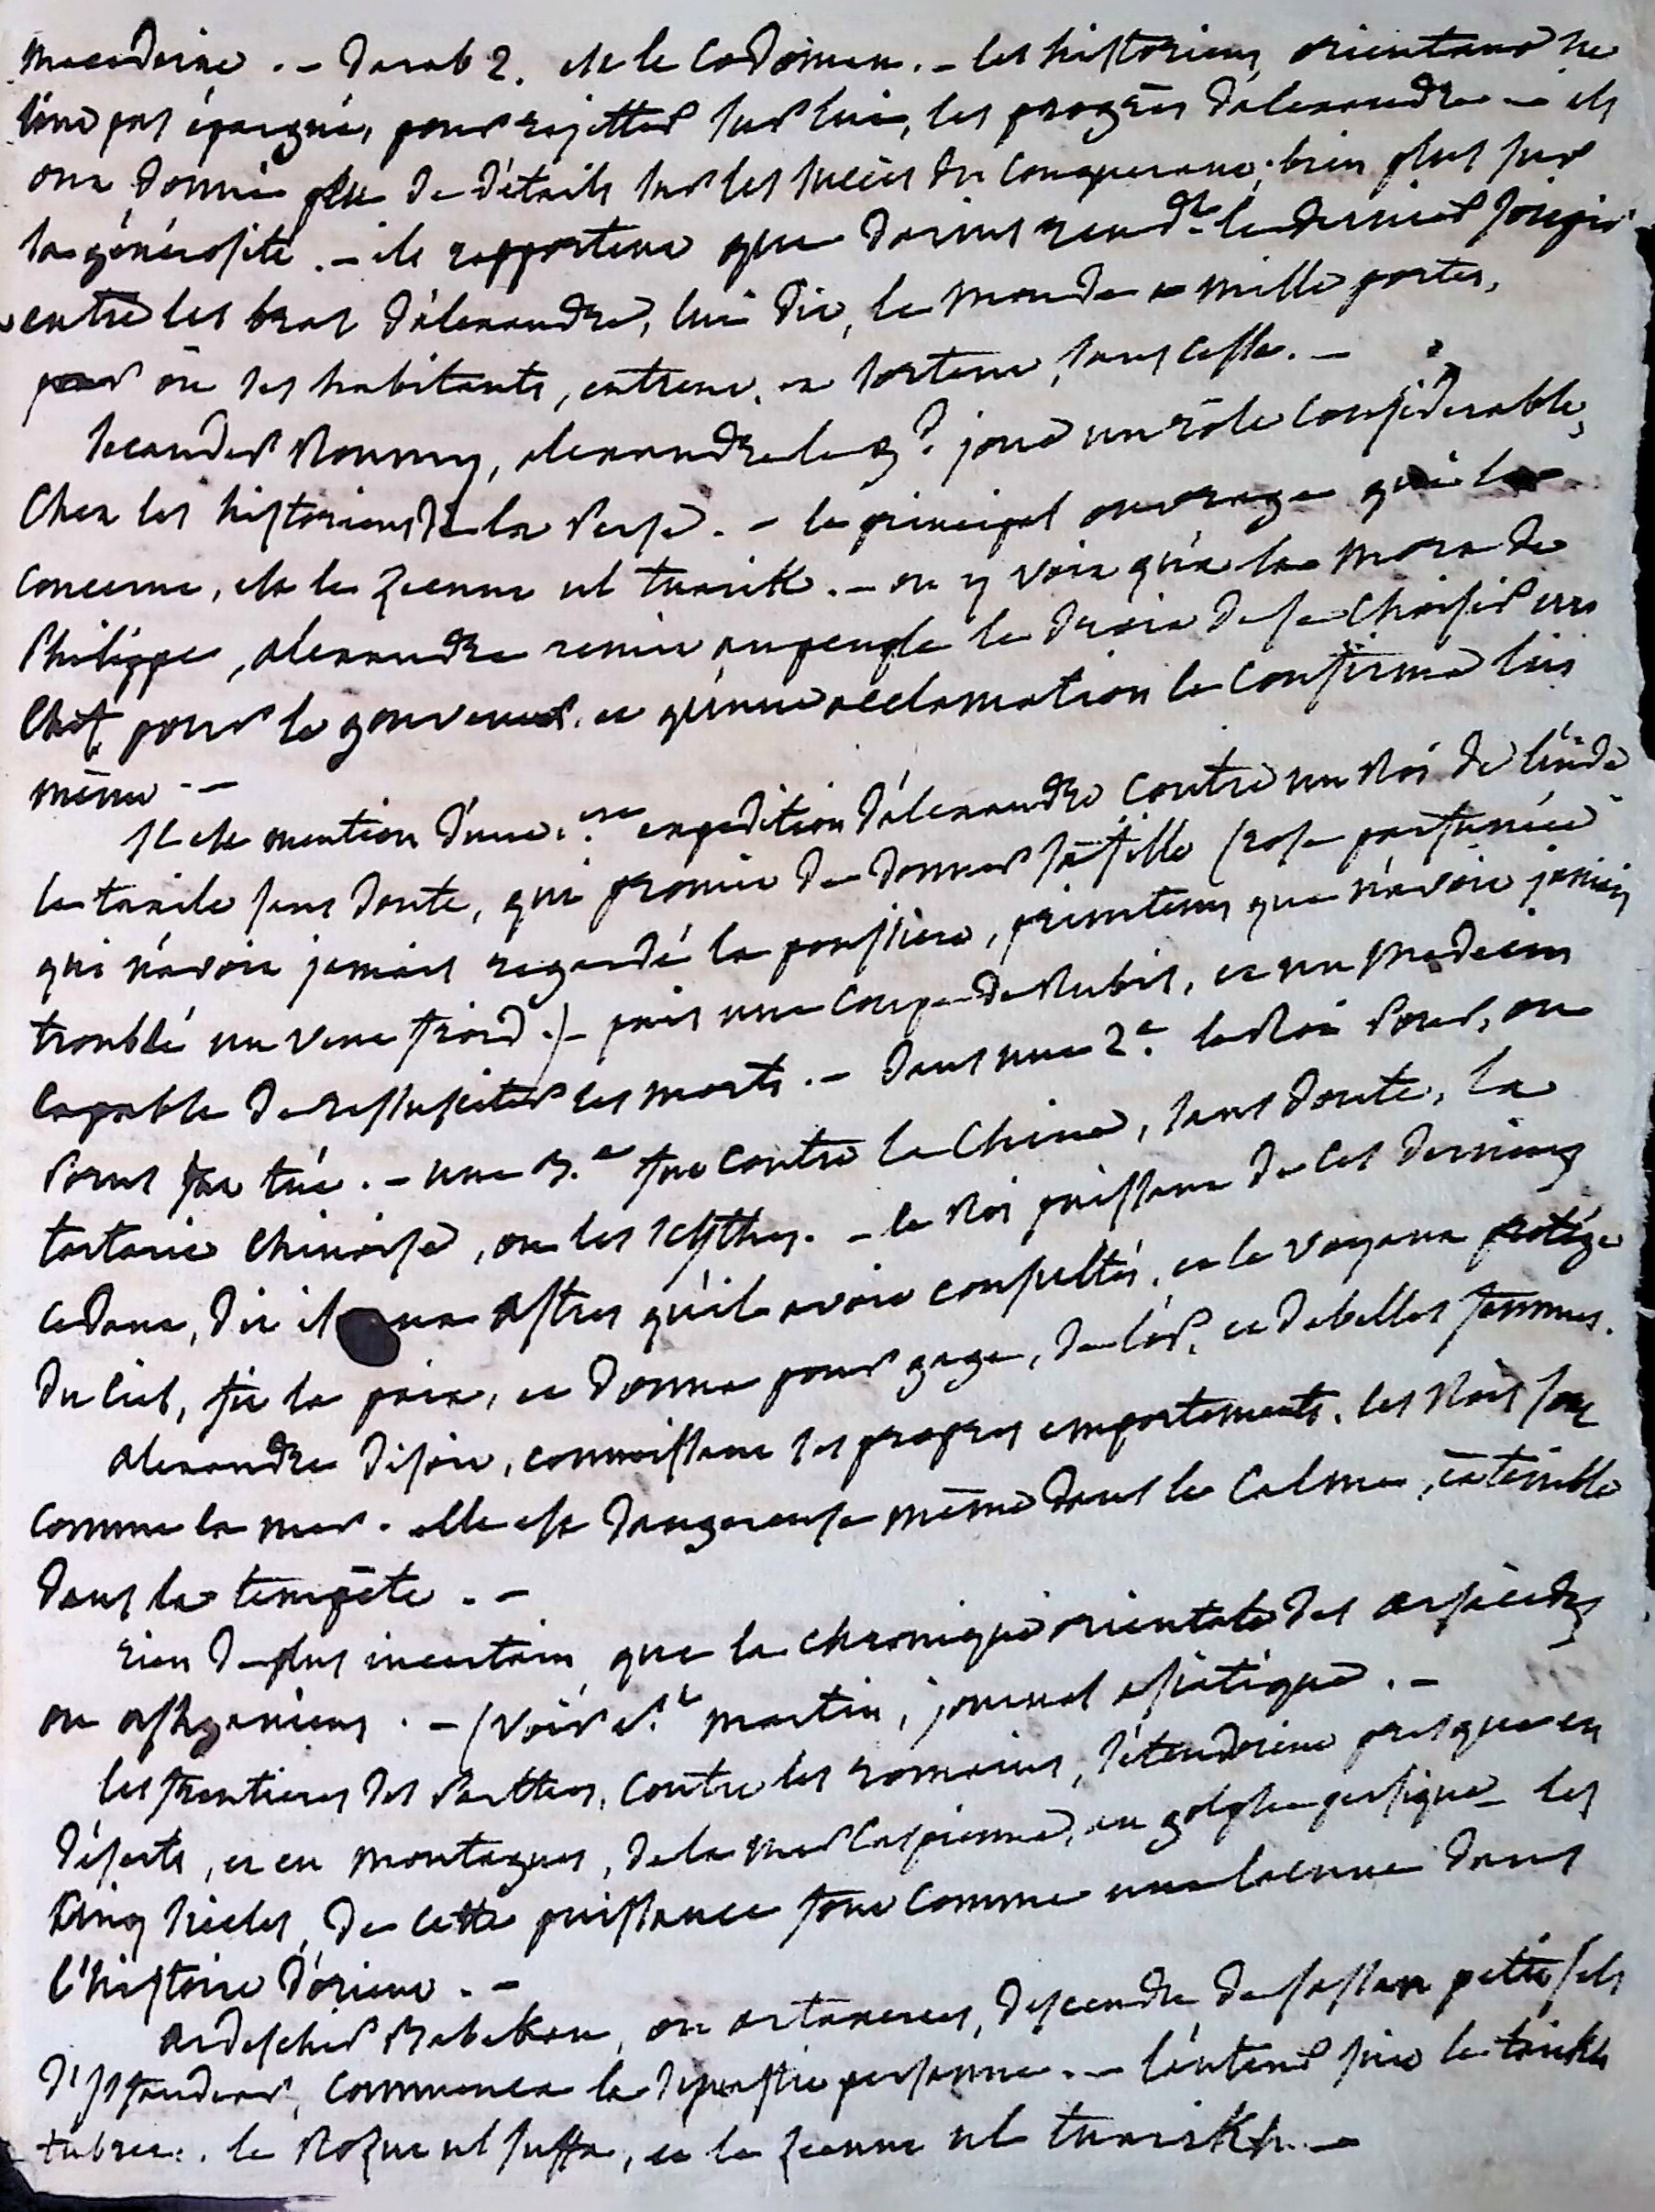 macedoine. - Darab 2. est le Codoman. - les historiens orientaux ne
l'ont pas épargné, pour rejetter sur lui, les progrès d'alexandre - ils
ont donné peu de détails sur les succès du conquerant; bien plus sur
sa générosité. - ils rapportent que Darius rend.t le dernier soupir
entre les bras d'alexandre, lui dit, le monde a mille portes,
par où ses habitants, entrent, et sortent, sans cesse. -
Secander Roumy, alexandre le g.d joue un rôle considerable,
Chez les historiens de la Perse. - le principal ouvrage qui le
concerne, est le Zeenut ul tuarikh. - on y voit qu'à la mort de
Philippe, alexandre remit au peuple le droit de se choisir un
Chef pour le gouverner, et qu'une acclamation le confirma lui
même. -
Il est mention d'une 1.ere expedition d'alexandre contre un Roi de l'inde
le taxile sans doute, qui promit de donner sa fille (rose parfumée
qui n'avoit jamais regardé la poussiere, printems que n'avoit jamais
troublé un vent froid.) - puis une coupe de Rubis, et un medecin
capable de ressusciter les morts. - dans une 2.e le Roi Pour, ou
Porus fut tué. - une 3.e fut contre la Chine, sans doute, la
tartarie chinoise, ou les scythes. - le Roi puissant de ces derniers
cedant, dit il aux astres qu'il avoit consultés, et le voyant protégé
du ciel, fit la paix, et donna pour gage, de l'or, et de belles femmes.
alexandre disoit, connoissant ses propres emportements, les Rois sont
comme la mer. elle est dangereuse même dans le calme, et terrible
dans la tempête. -
rien de plus incertain que la chronique orientale des arsacides
ou ashganiens. - (voir S.t martin, journal asiatique. -
les frontieres des Parthes, contre les romains, s'étendoient presque en
déserts, et en montagnes, de la mer Caspienne, au golphe persique - les
cinq siecles, de cette puissance sont comme une lacune dans
l'histoire d'orient. -
ardeschir Babekan, ou artaxerces, descendu de sassan petit fils
d'isfendear, commença la dynastie persanne. - l'auteur suit le tarikh
tubree, le Rozut ul suffa, et le Zeenut ul tuarikh. -